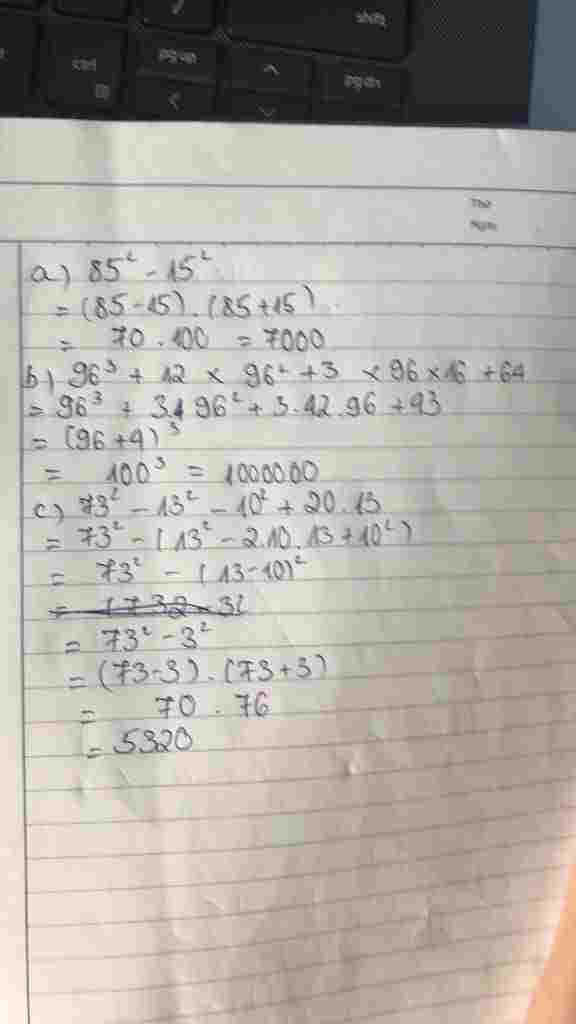 shift
ctrl
pg up
pg dn
Thứ
Ngày
a) 85² - 15²
= (85-15).(85+15)
= 70.100 = 7000
b) 96³ + 12 × 96² + 3 × 96 × 16 + 64
= 96³ + 3.4 96² + 3.42.96 + 43
= (96+4)³
= 100³ = 1000000
c) 73² - 13² - 10² + 20.13
= 73² - (13² - 2.10.13 + 10²)
= 73² - (13-10)²
= 73² - 3²
= (73-3).(73+3)
= 70.76
= 5320